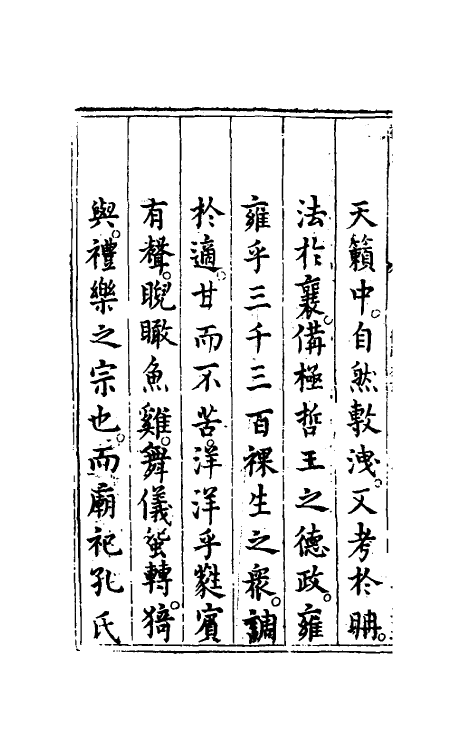 天籟中。自然敷洩。又考於耼。
法於襄。備極哲王之德政。雍
雍乎三千三百裸生之衆。調
於適。甘而不苦。洋洋乎蕤賓
有聲。睨瞰魚雞。舞儀蛍轉。猗
與。禮樂之宗也。而廟祀孔氏